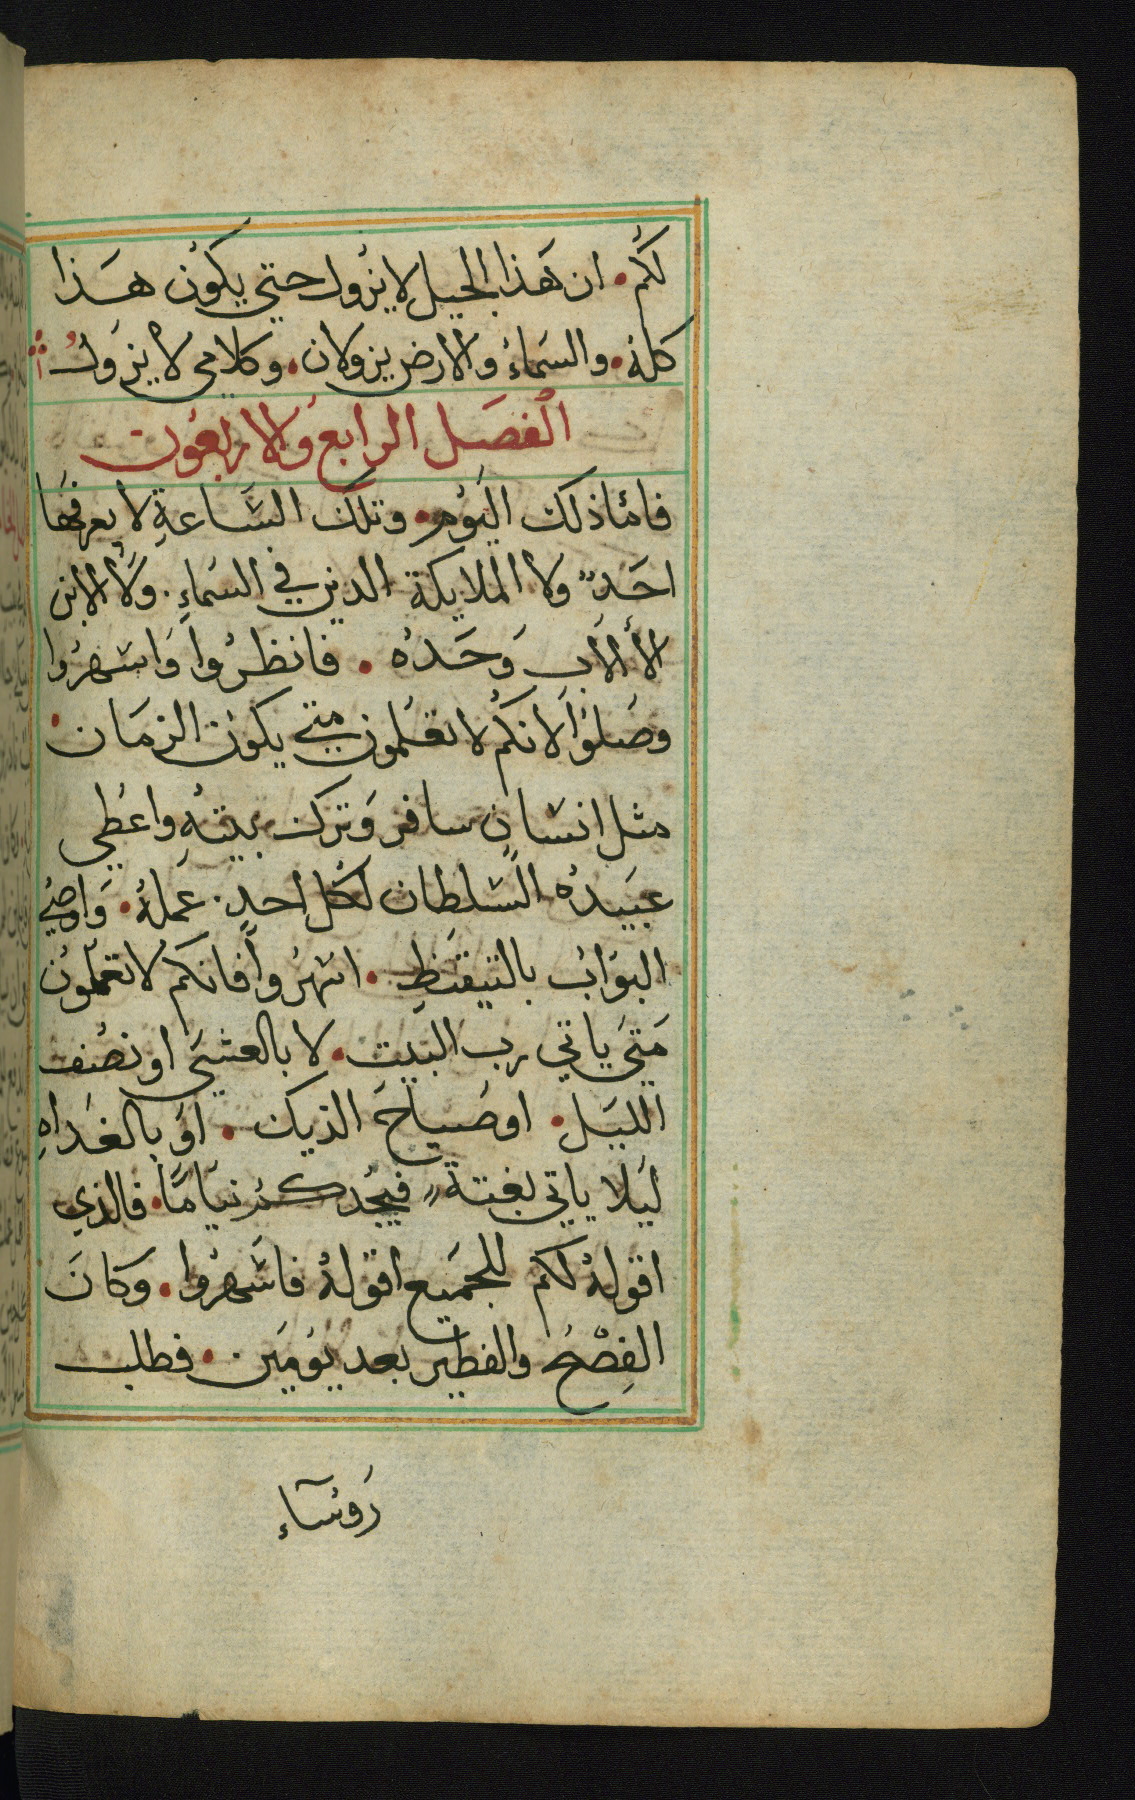 لكُم. ان هَذا الجيل لا يزول حتي يكون هَذا
كلهُ. والسَماءُ والارض يزولان. وكلامي لا يَزولُ
الفصَل الرابع والاربعون
فامّا ذلك اليَوُم. وتلك السَّاعةِ لا يعرفهَا
احَد" ولا الملايكة الدين في السَماءِ. ولا الابن
الا الاب وَحَدهُ. فانظرُوا وَاسَهرُوا
وصَلوا لانكُم لا تعَلمون متي يكون الزمَان.
مثل انسَانٍ سافر وَترك بيتهُ واعُطي
عبَيدهُ السَلطان لكل احدٍ. عَملهُ. وَاوصَي
البوابُ بالتيقظِ. اسَهرُوا فانكم لا تعَلمون
مَتيَ ياتي رب البيت. لا بالعشي او نصُف
الليَل. او صَياحَ الديك. او بالغَداهِ
ليَلا ياتي بغتة" فيَجدكم نيَامًا. فالذي
اقولهُ لكم للجَميع اقولهُ فاسَهرُوا. وكانَ
الفِصْحُ والفطير بعد يوُمَين. فطلب
رَوسَآءِ